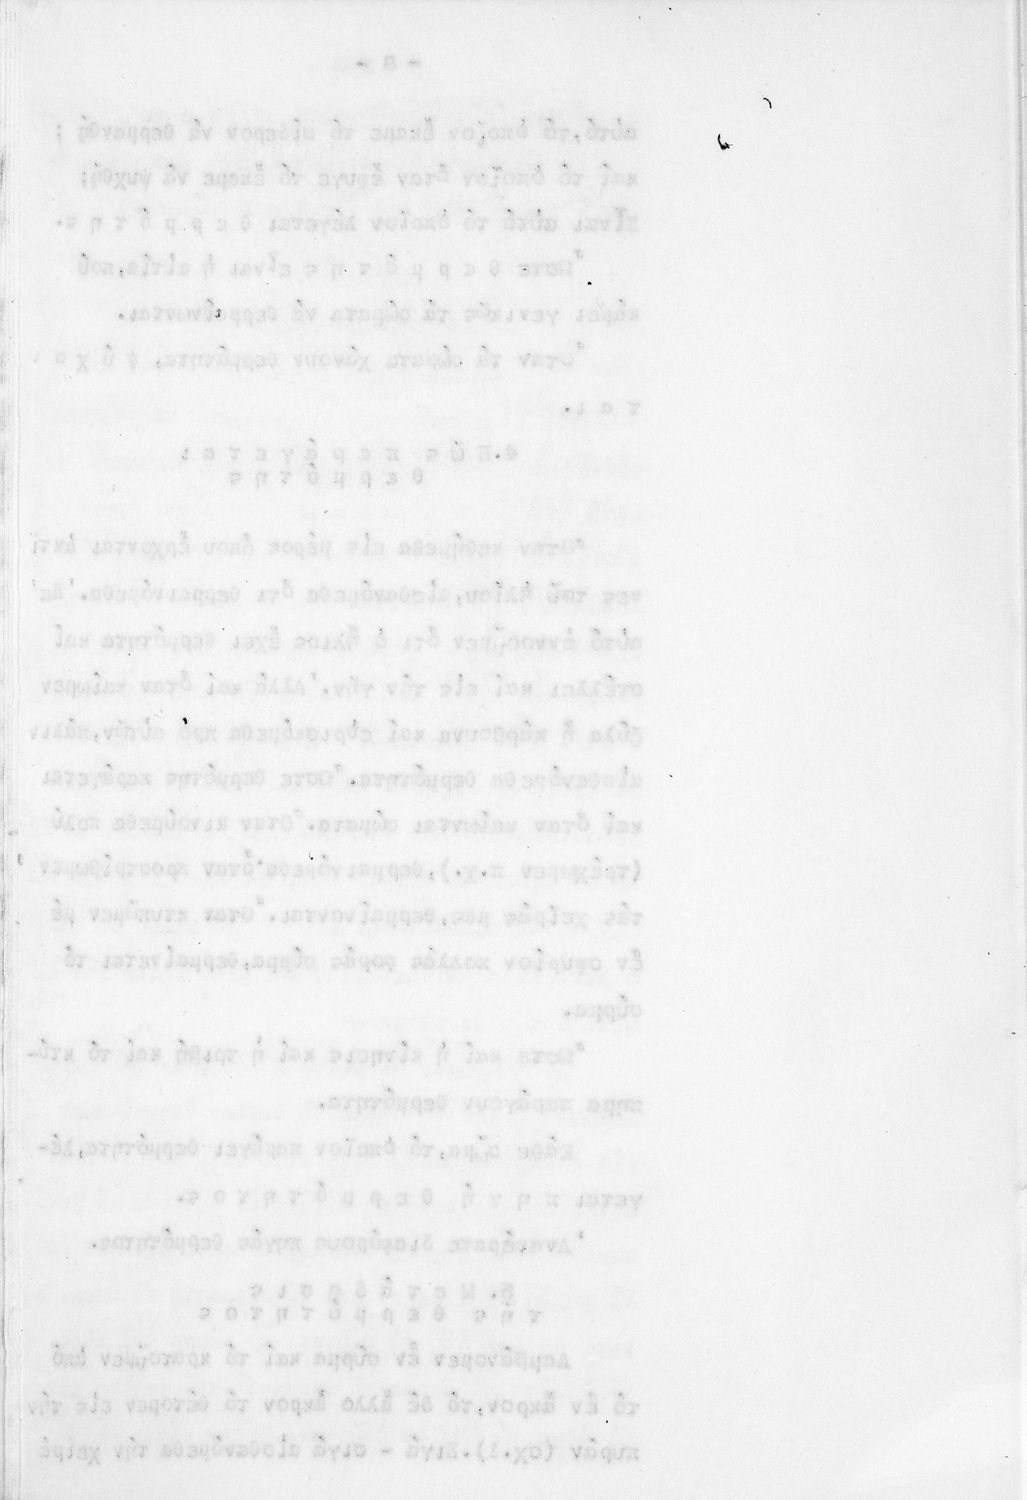 - 8 -
αὐτό,τό ὁποῖον ἔκαμε τό σίδερον νά θερμανθῇ ;
καί τό ὁποῖον ὅταν ἔφυγε τό ἔκαμε νά ψυχθῇ;
Εἶναι αὐτό τό ὁποῖον λέγεται θ ε ρ μ ό τ η ς.
Ὥστε θ ε ρ μ ό τ η ς εἶναι ἡ αἰτία,πού
κάμει γενικῶς τά σώματα νά θερμαίνωνται.
Ὅταν τά σώματα χάνουν θερμότητα, ψ ύ χ ο ν
τ α ι.
4.Π ῶ ς π α ρ ά γ ε τ α ι
θ ε ρ μ ό τ η ς
Ὅταν καθήμεθα εἰς μέρος ὅπου ἔρχονται ἀκτῖ
νες τοῦ ἡλίου,αἰσθανόμεθα ὅτι θερμαινόμεθα.Ἀπ'
αὐτό ἐννοοῦμεν ὅτι ὁ ἥλιος ἔχει θερμότητα καί
στέλλει καί εἰς τήν γῆν.Ἀλλά καί ὅταν καίωμεν
ξύλα ἤ κάρβουνα καί εὑρισκόμεθα πρό αὐτῶν,πάλιν
αἰσθανόμεθα θερμότητα.Ὥστε θερμότης παράγεται
καί ὅταν καίωνται σώματα.Ὅταν κινούμεθα πολύ
(τρέχωμεν π.χ.),θερμαινόμεθα.ὅταν προστρίβωμεν
τάς χεῖράς μας,θερμαίνονται.Ὅταν κτυπῶμεν μέ
ἕν σφυρίον πολλάς φοράς σύρμα,θερμαίνεται τό
σύρμα.
Ὥστε καί ἡ κίνησις καί ἡ τριβή καί τό κτύ-
πημα παράγουν θερμότητα.
Κάθε σῶμα,τό ὁποῖον παράγει θερμότητα,λέ-
γεται π η γ ή θ ε ρ μ ό τ η τ ο ς.
Ἀναφέρατε διαφόρους πηγάς θερμότητος.
5. Μ ε τ ά δ ο σ ι ς
τ ῆ ς θ ε ρ μ ό τ η τ ο ς
Λαμβάνομεν ἕν σύρμα καί τό κρατοῦμεν ἀπό
τό ἕν ἄκρον,τό δέ ἄλλο ἄκρον τό θέτομεν εἰς τήν
πυράν (σχ.1).Σιγά - σιγά αἰσθανόμεθα τήν χεῖρά